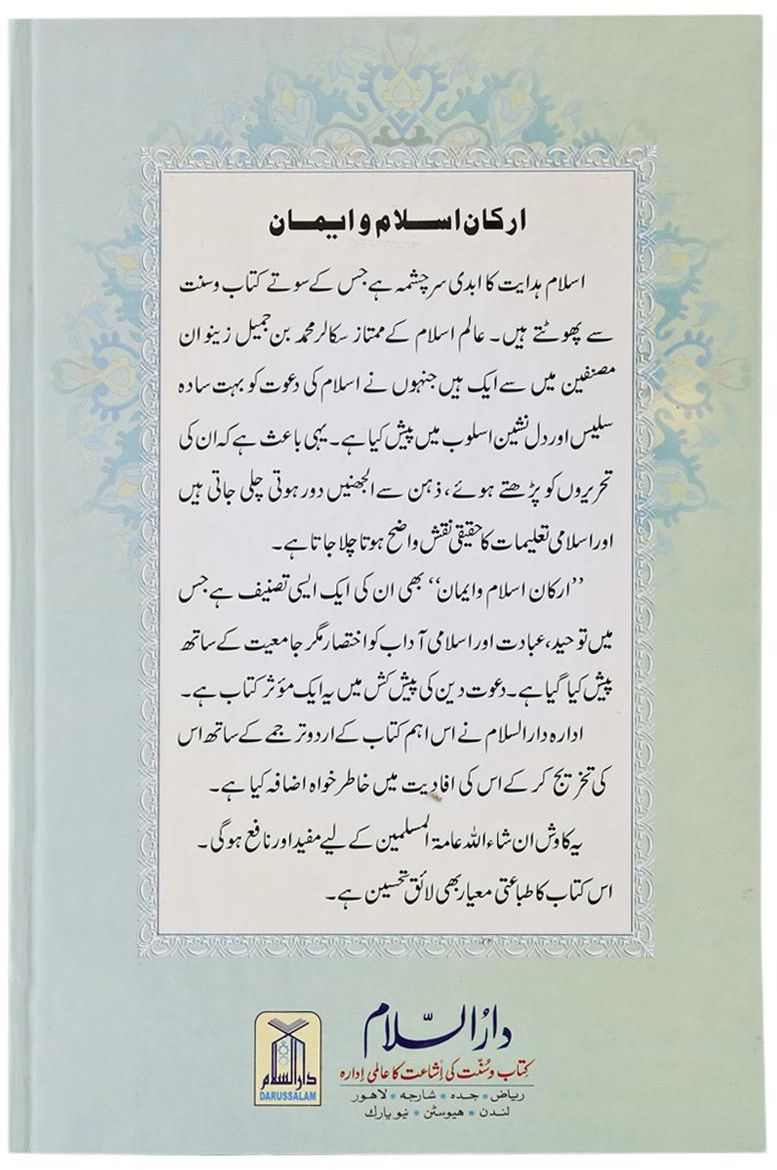 ارکان اسلام و ایمان
اسلام ہدایت کا ابدی سرچشمہ ہے جس کے سوتے کتاب و سنت
سے پھوٹتے ہیں۔ عالم اسلام کے ممتاز سکالر محمد بن جمیل زینو ان
مصنفین میں سے ایک ہیں جنہوں نے اسلام کی دعوت کو بہت سادہ
سلیس اور دل نشین اسلوب میں پیش کیا ہے۔ یہی باعث ہے کہ ان کی
تحریروں کو پڑھتے ہوئے، ذہن سے الجھنیں دور ہوتی چلی جاتی ہیں
اور اسلامی تعلیمات کا حقیقی نقش واضح ہوتا چلا جاتا ہے۔
”ارکان اسلام و ایمان“ بھی ان کی ایک ایسی تصنیف ہے جس
میں توحید، عبادت اور اسلامی آداب کو اختصار مگر جامعیت کے ساتھ
پیش کیا گیا ہے۔ دعوت دین کی پیش کش میں یہ ایک مؤثر کتاب ہے۔
ادارہ دارالسلام نے اس اہم کتاب کے اردو ترجمے کے ساتھ اس
کی تخریج کر کے اس کی افادیت میں خاطر خواہ اضافہ کیا ہے۔
یہ کاوش ان شاء اللہ عامۃ المسلمین کے لیے مفید اور نافع ہوگی۔
اس کتاب کا طباعتی معیار بھی لائق تحسین ہے۔
دارُالسّلام
کتاب و سُنّت کی اشاعت کا عالمی ادارہ
ریاض • جدہ • شارجہ • لاہور
لندن • ہیوسٹن • نیو یارک
دارالسلام
DARUSSALAM